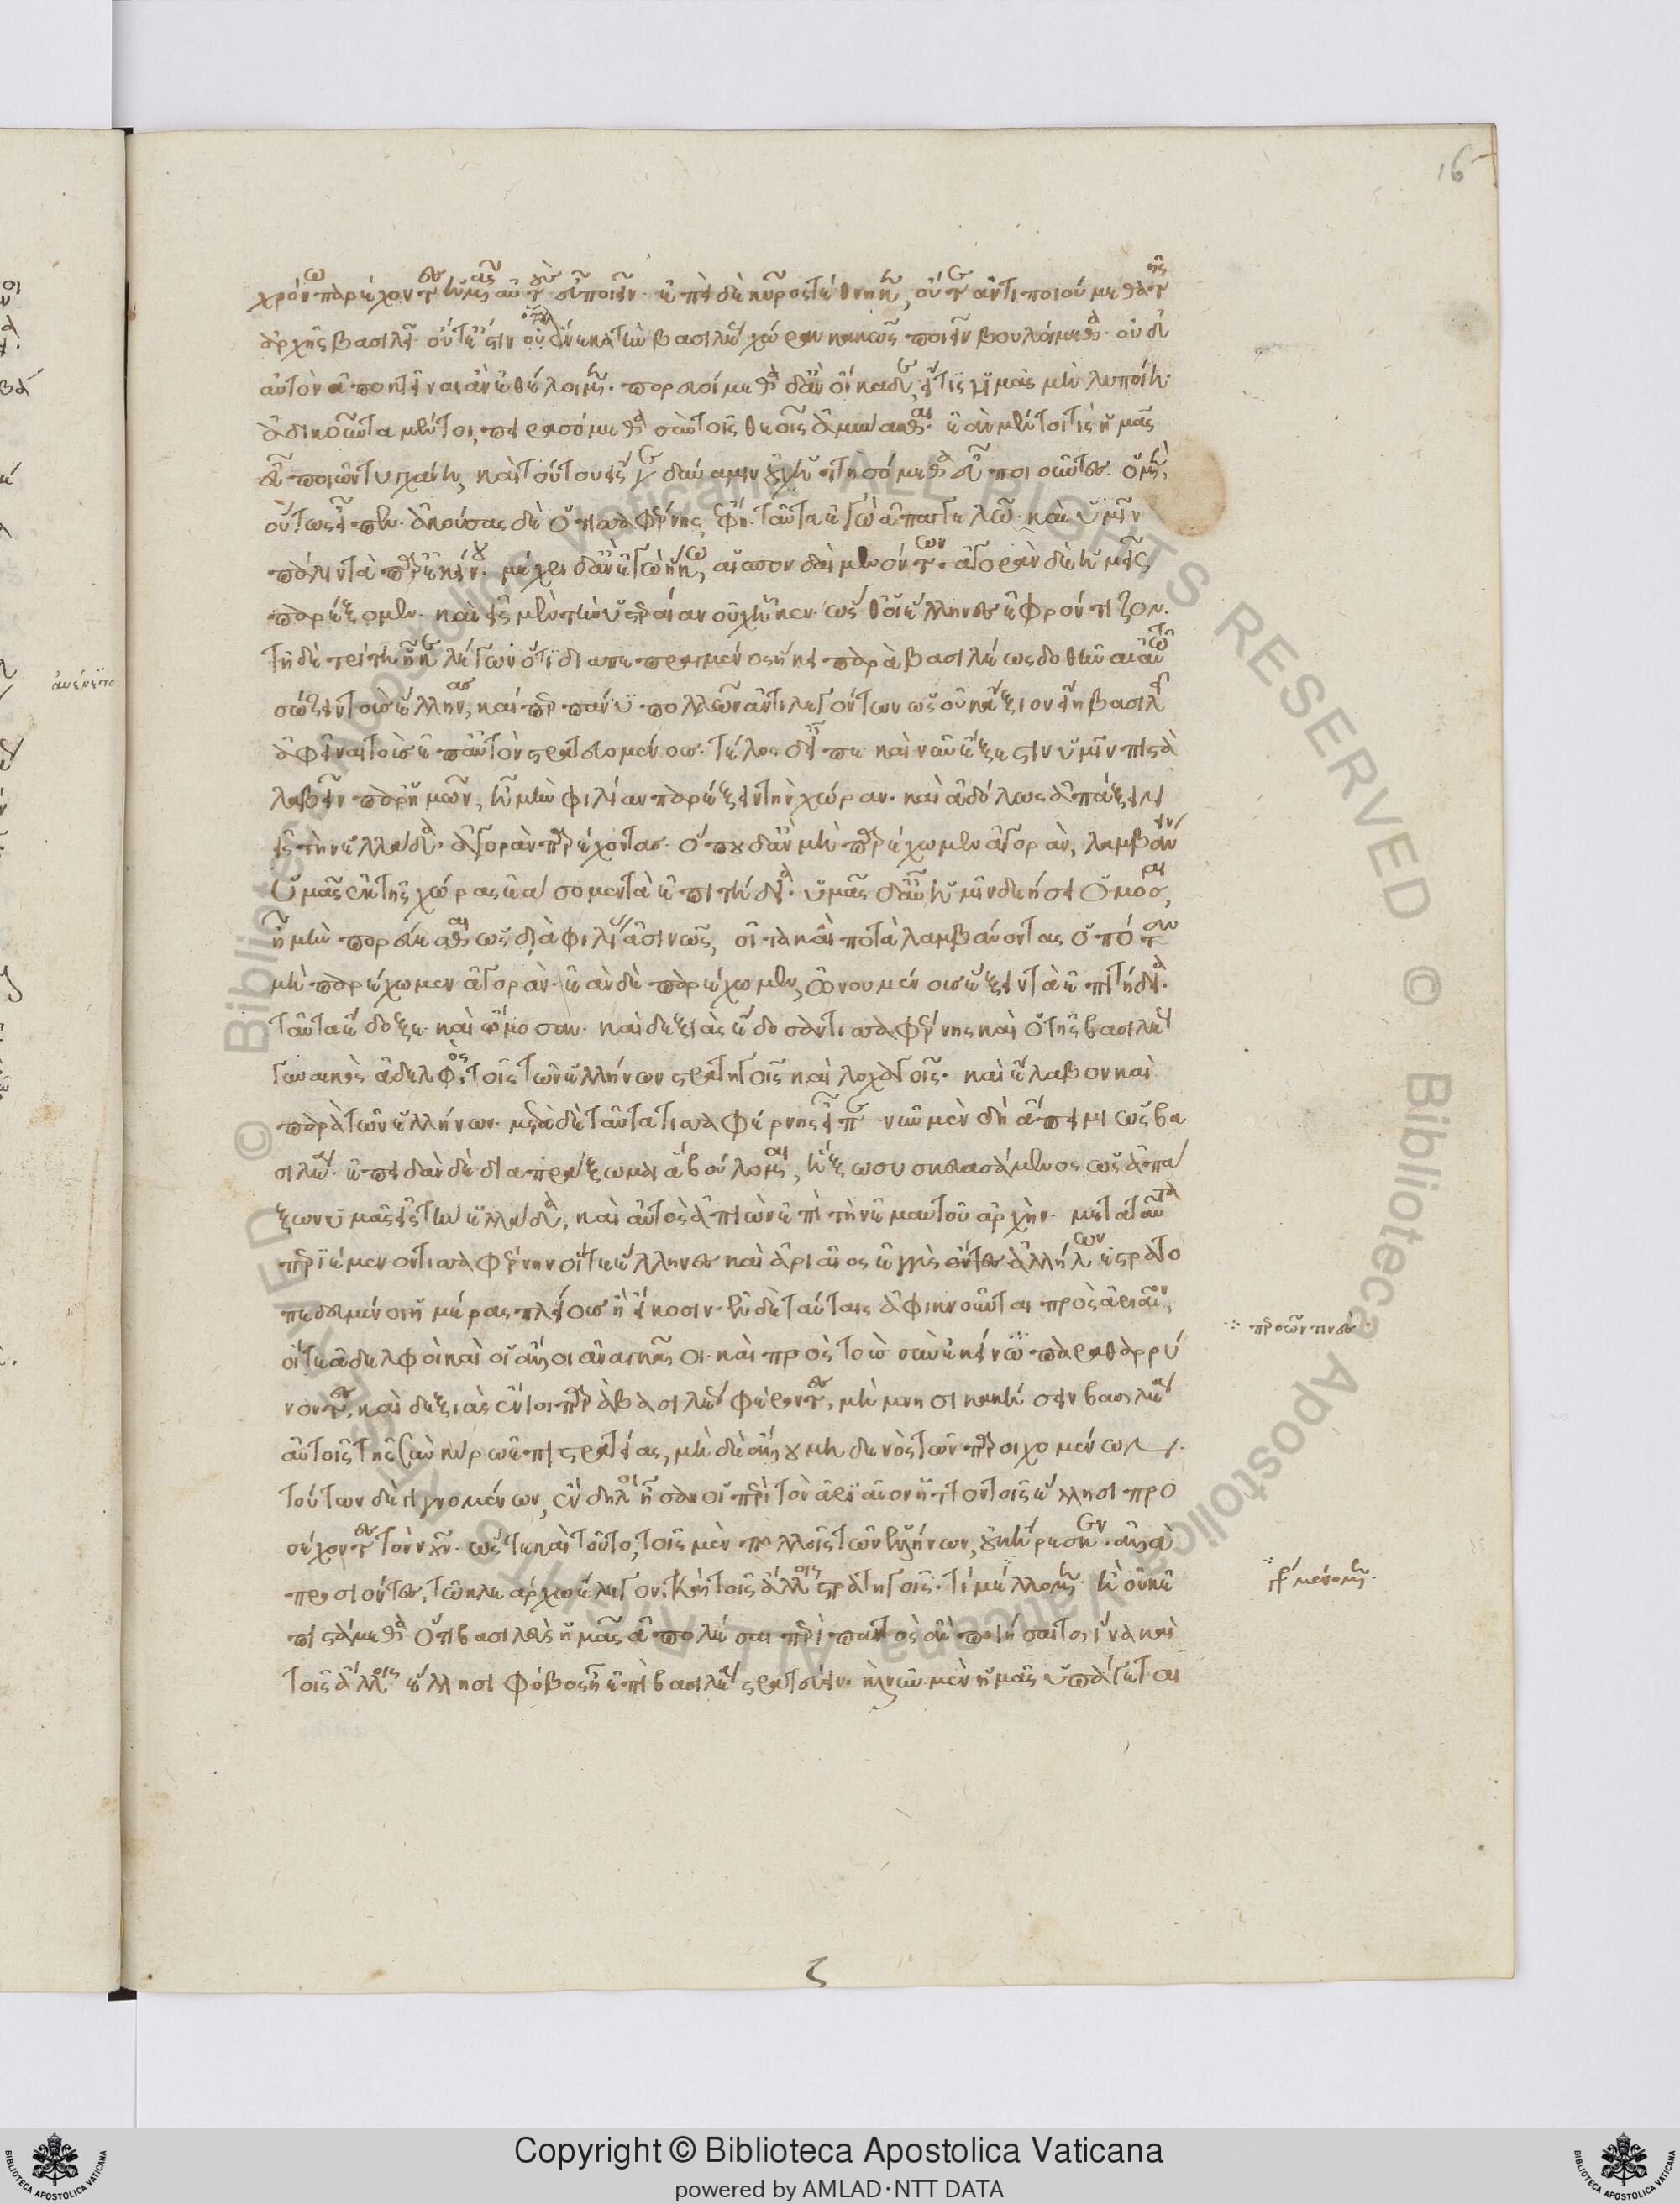 χρόνῳ παρέχοντες ἡμᾶς αὐτοὺς εὖ ποιεῖν. ἐπεὶ δὲ κῦρος τέθνηκεν, οὔτε ἀντιποιούμεθα τῆς
ἀρχῆς βασιλεῖ οὔτ' ἔστιν ὅτου ἕνεκα τὴν βασιλέως χώραν κακῶς ποιεῖν βουλοίμεθα. οὐδ'
αὐτὸν ἀποκτεῖναι ἂν ἐθέλοιμεν. πορευοίμεθα δ' ἂν οἴκαδε, εἴ τις ἡμᾶς μὴ λυποίη.
ἀδικοῦντα μέντοι, πειρασόμεθα σὺν τοῖς θεοῖς ἀμύνασθαι. ἐὰν μέντοι τις ἡμᾶς
εὖ ποιῶν ὑπάρχῃ, καὶ τούτου εἴς γε δύναμιν οὐχ ἡττησόμεθα εὖ ποιοῦντες. ὁ μὲν
οὕτως εἶπεν. ἀκούσας δὲ ὁ τισαφέρνης, ἔφη ταῦτα ἐγὼ ἀπαγγελῶ. καὶ ὑμῖν
πάλιν τὰ παρ' ἐκείνου. μέχρι δ' ἂν ἐγὼ ἥκω, αἱ σπονδαὶ μενόντων. ἀγορὰν δὲ ἡμεῖς
παρέξομεν. καὶ εἰς μὲν τὴν ὑστεραίαν οὐχ ἧκεν. ὥσθ' οἱ ἕλληνες ἐφρόντιζον.
τῇ δὲ τρίτῃ ἥκων λέγων ὅτι διαπεπραγμένος ἥκει παρὰ βασιλέως δοθῆναι αὐτῷ
σώζειν τοὺς ἕλληνας, καίπερ πάνυ πολλῶν ἀντιλεγόντων ὡς οὐκ ἄξιον εἴη βασιλεῖ
ἀφεῖναι τοὺς ἐπ' αὐτὸν στρατευομένους. τέλος δὲ εἶπε καὶ νῦν ἔξεστιν ὑμῖν πιστὰ
λαβεῖν παρ' ἡμῶν, ἦ μὴν φιλίαν παρέξειν τὴν χώραν. καὶ ἀδόλως ἀπάξειν
εἰς τὴν ἑλλάδα ἀγορὰν παρέχοντας. ὅπου δ' ἂν μὴ παρέχωμεν ἀγορὰν, λαμβάνειν
ὑμᾶς ἐκ τῆς χώρας ἐάσομεν τὰ ἐπιτήδεια. ὑμᾶς δ' αὖ ἡμῖν δεήσει ὀμόσαι,
ἦ μὴν πορεύεσθαι ὡς διὰ φιλίας ἀσινῶς, σῖτα καὶ ποτὰ λαμβάνοντας ὁπόταν
μὴ παρέχωμεν ἀγορὰν. ἐὰν δὲ παρέχωμεν, ὠνουμένους ἕξειν τὰ ἐπιτήδεια.
ταῦτα ἔδοξε. καὶ ὤμοσαν. καὶ δεξιὰς ἔδοσαν τισαφέρνης καὶ ὁ τῆς βασιλέως
γυναικὸς ἀδελφὸς, τοῖς τῶν ἑλλήνων στρατηγοῖς καὶ λοχαγοῖς. καὶ ἔλαβον καὶ
παρὰ τῶν ἑλλήνων. μετὰ δὲ ταῦτα τισαφέρνης εἶπε. νῦν μὲν δὴ ἄπειμι ὡς βα
σιλέα. ἐπειδὰν δὲ διαπράξωμαι ἃ βούλομαι, ἥξω συσκευασάμενος ὡς ἀπά
ξων ὑμᾶς εἰς τὴν ἑλλάδα, καὶ αὐτὸς ἀπιὼν ἐπὶ τὴν ἐμαυτοῦ ἀρχήν. μετὰ ταῦτα
περιέμενον τισαφέρνην οἵ τε ἕλληνες καὶ ἀριαῖος ἐγγὺς ὄντες ἀλλήλων ἐστρατο
πεδευμένοι ἡμέρας πλείους ἢ εἴκοσιν. ἐν δὲ ταύταις ἀφικνοῦνται πρὸς ἀριαῖον,
οἵ τε ἀδελφοὶ καὶ οἱ ἄλλοι ἀναγκαῖοι. καὶ πρὸς τοὺς σὺν ἐκείνῳ παρεθάρρυ
νον τε, καὶ δεξιὰς ἔνιοι παρὰ βασιλέως φέροντες, μὴ μνησικακήσειν βασιλέα
αὐτοῖς τῆς σὺν κύρῳ ἐπιστρατείας, μηδὲ ἄλλου μηδενὸς τῶν παροιχομένων.
τούτων δὲ γιγνομένων, ἔνδηλοι ἦσαν οἱ περὶ τὸν ἀριαῖον ἧττον τοῖς ἕλλησι προ
σέχοντες τὸν νοῦν. ὥστε καὶ τοῦτο, τοῖς μὲν πολλοῖς τῶν ἑλλήνων, οὐκ ἤρεσκεν. ἀλλὰ
προσιόντες, τῷ κλεάρχῳ ἔλεγον καὶ τοῖς ἄλλοις στρατηγοῖς. τί μέλλομεν. ἢ οὐκ ἐ
πιστάμεθα ὅτι βασιλεὺς ἡμᾶς ἀπολέσαι περὶ παντὸς ἂν ποιήσαιτο, ἵνα καὶ
τοῖς ἄλλοις ἕλλησι φόβος ᾖ ἐπὶ βασιλέα στρατεύειν. καὶ νῦν μὲν ἡμᾶς ὑπάγεται
16
Copyright © Biblioteca Apostolica Vaticana
powered by AMLAD·NTT DATA